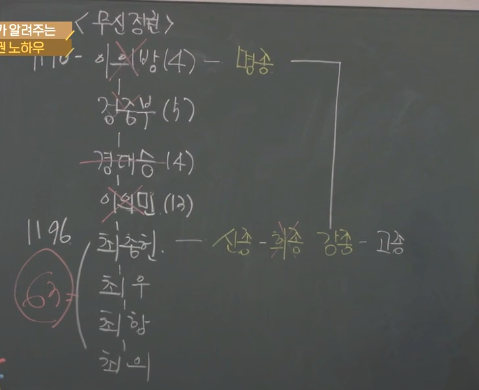 가 알려주는
권 노하우
<무신정권>
1170- 이의방(4) - 명종
정중부(5)
경대승(4)
이의민(13)
1196 최충헌. - 신종 - 희종 강종 - 고종
63= 최우
최항
최의